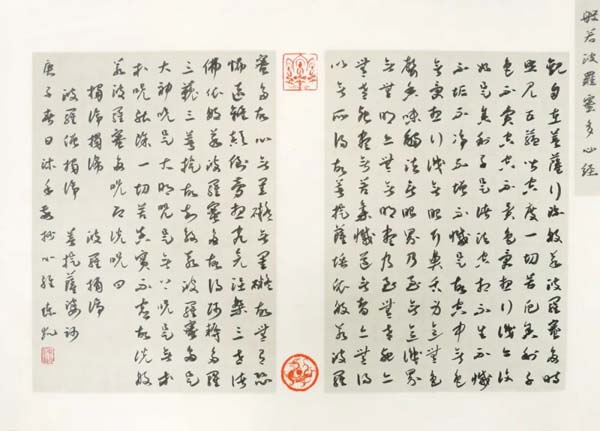 般若波羅蜜多心經
觀自在菩薩行深般若波羅蜜多時
照見五蘊皆空度一切苦厄舍利子
色不異空空不異色受想行識亦復
如是舍利子是諸法空相不生不滅
不垢不淨不增不減是故空中無色
無受想行識無眼耳鼻舌身意無色
聲香味觸法無眼界乃至無意識界
無無明亦無無明盡乃至無老死亦
無老死盡無苦集滅道無智亦無得
以無所得故菩提薩埵依般若波羅
蜜多故心無罣礙無罣礙故無有恐
怖遠離顛倒夢想究竟涅槃三世諸
佛依般若波羅蜜多故得阿耨多羅
三藐三菩提故知般若波羅蜜多是
大神咒是大明咒是無上咒是無等
等咒能除一切苦真實不虛故說般
若波羅蜜多咒即說咒曰
揭諦揭諦 波羅揭諦
波羅僧揭諦 菩提薩婆訶
庚子春日沐手敬抄心經